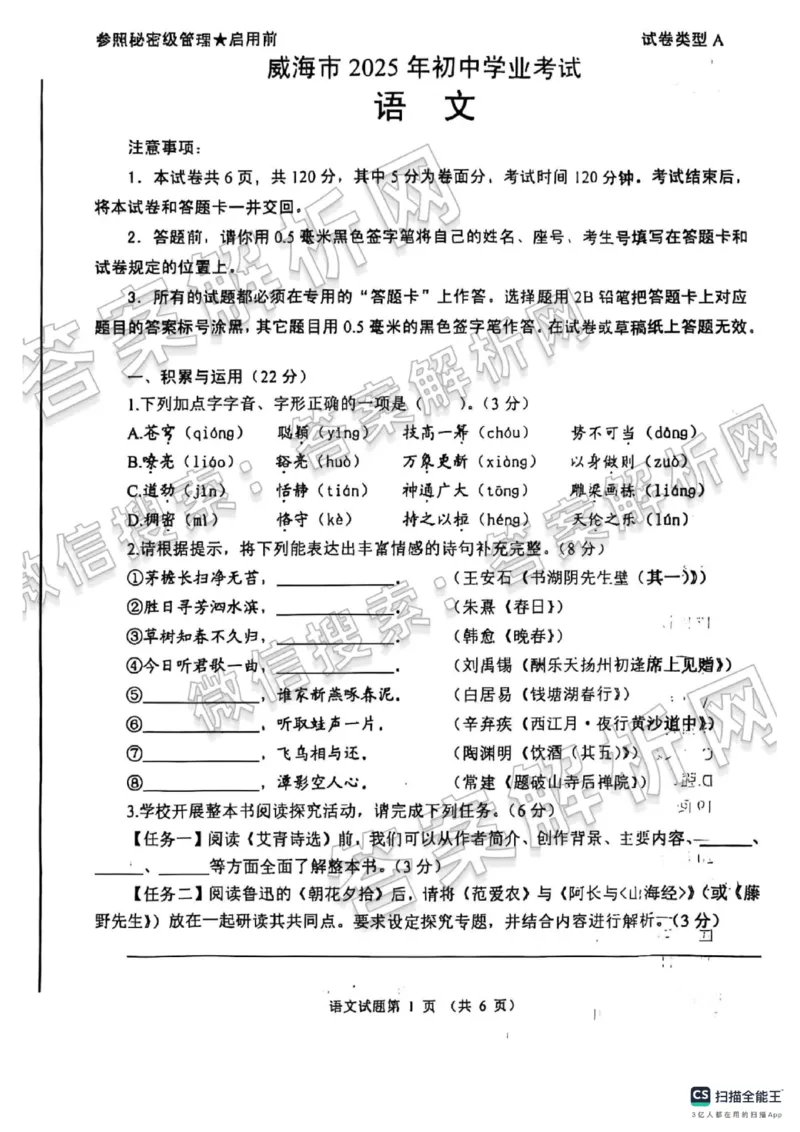 参照秘密级管理★启用前
试卷类型 A
威海市 2025 年初中学业考试
语 文
注意事项：
1．本试卷共 6 页，共 120 分，其中 5 分为卷面分，考试时间 120 分钟。考试结束后，
将本试卷和答题卡一并交回。
2．答题前，请你用 0.5 毫米黑色签字笔将自己的姓名、座号、考生号填写在答题卡和
试卷规定的位置上。
3．所有的试题都必须在专用的“答题卡”上作答。选择题用 2B 铅笔把答题卡上对应
题目的答案标号涂黑，其它题目用 0.5 毫米的黑色签字笔作答。在试卷或草稿纸上答题无效。
一、积累与运用（22 分）
1.下列加点字字音、字形正确的一项是（　　）。（3 分）
A.苍穹（qióng） 聪颖（yǐng） 技高一筹（chóu） 势不可当（dāng）
B.嘹亮（liáo） 豁光（huò） 万象更新（xiàng） 以身做则（zuò）
C.道劲（jìn） 恬静（tián） 神通广大（tōng） 雕梁画栋（liáng）
D.稠密（mì） 恪守（kè） 持之以桓（héng） 天伦之乐（lún）
2.请根据提示，将下列能表达出丰富情感的诗句补充完整。（8 分）
①茅檐长扫净无苔，__________。 （王安石《书湖阴先生壁（其一）》）
②胜日寻芳泗水滨，__________。 （朱熹《春日》）
③草树知春不久归，__________。 （韩愈《晚春》）
④今日听君歌一曲，__________。 （刘禹锡《酬乐天扬州初逢席上见赠》）
⑤__________，谁家新燕啄春泥。 （白居易《钱塘湖春行》）
⑥__________，听取蛙声一片。 （辛弃疾《西江月·夜行黄沙道中》）
⑦__________，飞鸟相与还。 （陶渊明《饮酒（其五）》）
⑧__________，潭影空人心。 （常建《题破山寺后禅院》）
3.学校开展整本书阅读探究活动，请完成下列任务。（6 分）
【任务一】阅读《艾青诗选》前，我们可以从作者简介、创作背景、主要内容、_____、
_____、_____等方面全面了解整本书。（3 分）
【任务二】阅读鲁迅的《朝花夕拾》后，请将《范爱农》与《阿长与〈山海经〉》（或《藤
野先生》）放在一起研读其共同点。要求设定探究专题，并结合内容进行解析。（3 分）
语文试题第 1 页 （共 6 页）
微信搜索：答案解析网
微信搜索：答案解析网
CS 扫描全能王
3亿人都在用的扫描App